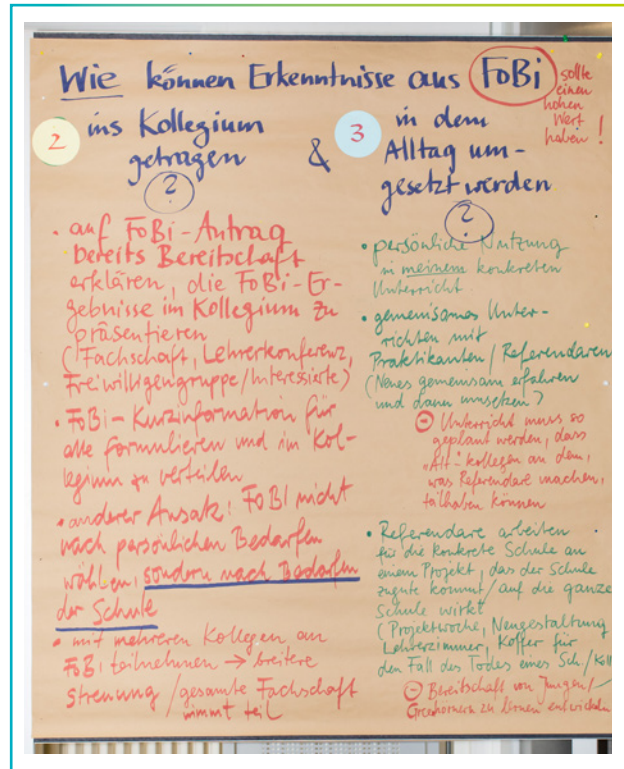 Wie können Erkenntnisse aus FoBi
sollte
einen
hohen
Wert
haben!
2 ins Kollegium
getragen
?
&
3 in dem
Alltag um-
gesetzt werden
?
• auf FoBi-Antrag
bereits Bereitschaft
erklären, die FoBi-Er-
gebnisse im Kollegium zu
präsentieren
(Fachschaft, Lehrerkonferenz,
Freiwilligengruppe/Interessierte)
• FoBi-Kurzinformation für
alle formulieren und im Kol-
legium zu verteilen
• anderer Ansatz: FOBI nicht
nach persönlichen Bedarfen
wählen, sondern nach Bedarfen
der Schule
• mit mehreren Kollegen an
FoBi teilnehmen → breitere
Streuung/gesamte Fachschaft
nimmt teil
• persönliche Nutzung
in meinem konkreten
Unterricht
• gemeinsames Unter-
richten mit
Praktikanten/Referendaren
(Neues gemeinsam erfahren
und dann umsetzen)
⊖ Unterricht muss so
geplant werden, dass
"Alt-"kollegen an dem,
was Referendare machen,
teilhaben können
• Referendare arbeiten
für die konkrete Schule an
einem Projekt, das der Schule
zugute kommt/auf die ganze
Schule wirkt
(Projektwoche, Neugestaltung
Lehrerzimmer, Koffer für
den Fall des Todes eines Sch./Koll
⊖ Bereitschaft von Jungen/
Greenhörnern zu lernen entwickeln